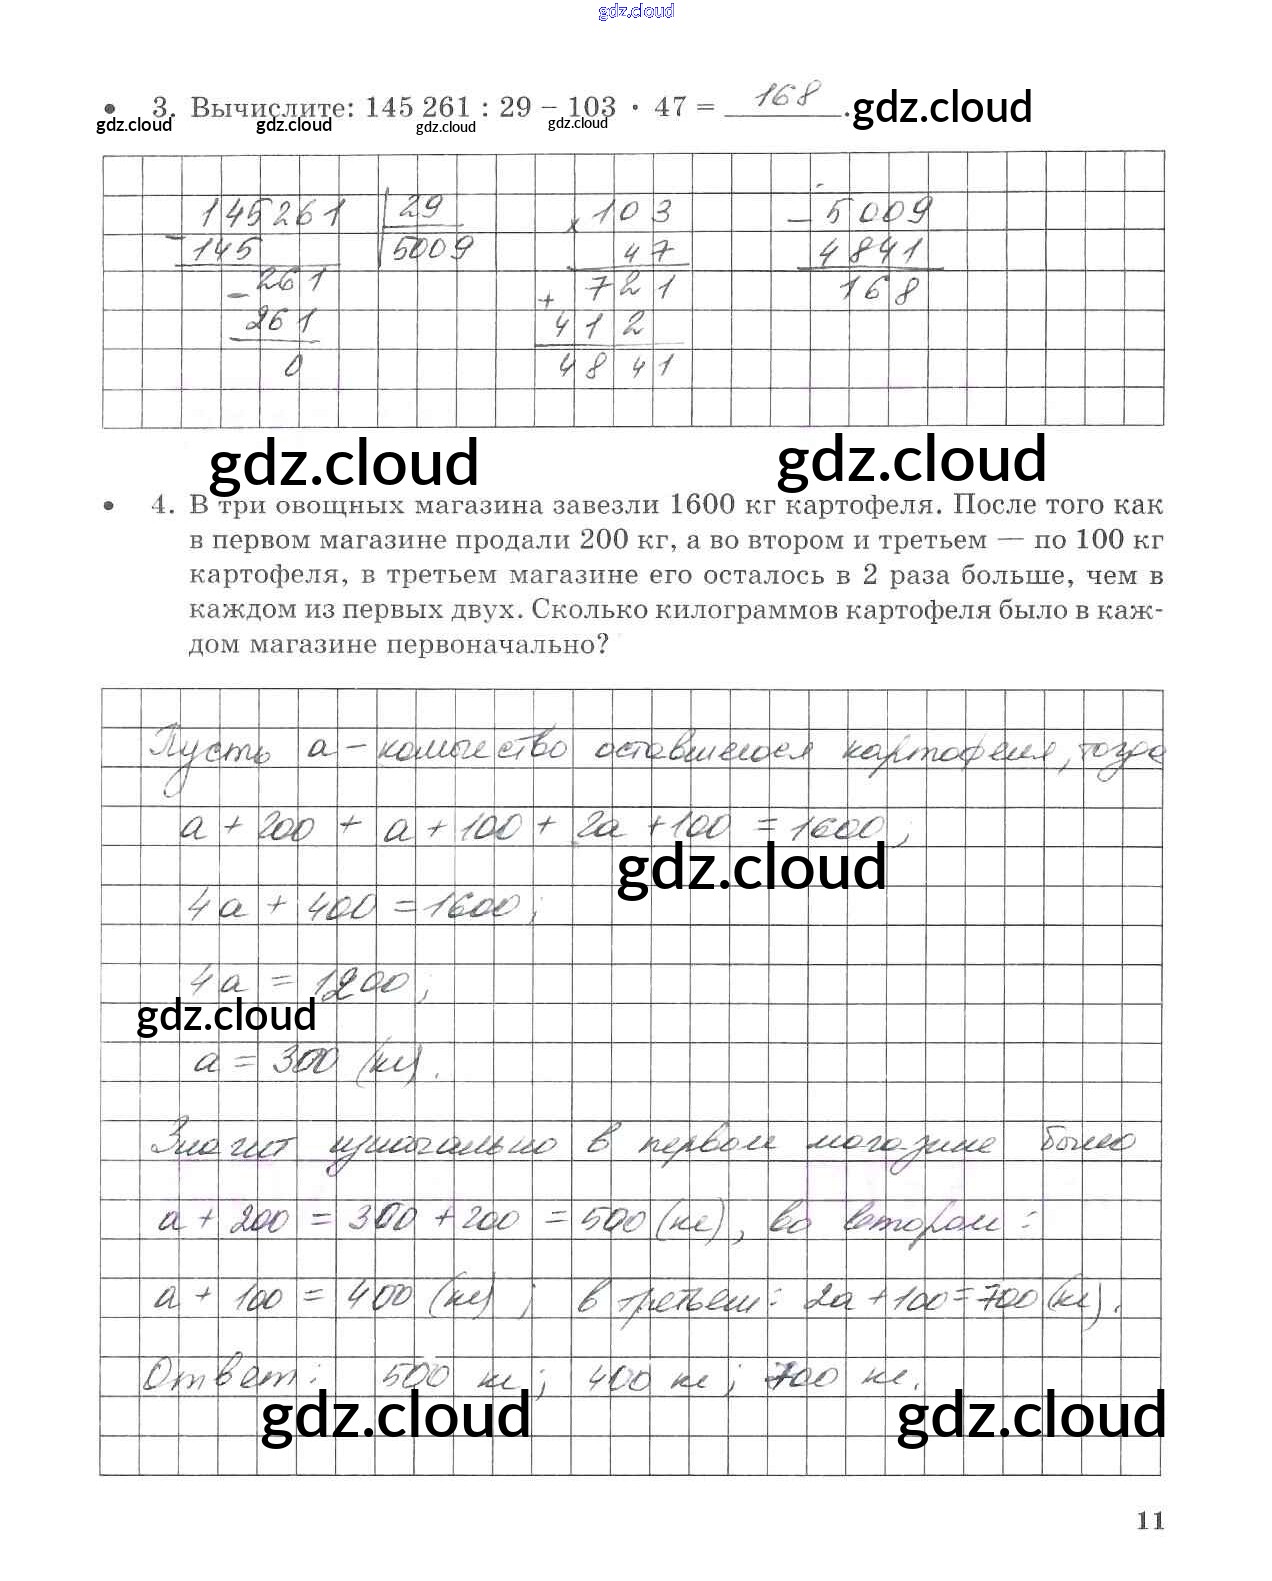 gdz.cloud
• 3. Вычислите: 145 261 : 29 – 103 · 47 = 168 . gdz.cloud
gdz.cloud gdz.cloud gdz.cloud gdz.cloud
145261 29 × 103 – 5009
– 145 5009 47 4841
– 261 + 721 168
261 412
0 4841
gdz.cloud gdz.cloud
• 4. В три овощных магазина завезли 1600 кг картофеля. После того как
в первом магазине продали 200 кг, а во втором и третьем — по 100 кг
картофеля, в третьем магазине его осталось в 2 раза больше, чем в
каждом из первых двух. Сколько килограммов картофеля было в каж-
дом магазине первоначально?
Пусть а – количество оставшегося картофеля, тогда
а + 200 + а + 100 + 2а + 100 = 1600;
gdz.cloud
4а + 400 = 1600;
4а = 1200;
gdz.cloud
а = 300 (кг).
Значит изначально в первом магазине было
а + 200 = 300 + 200 = 500 (кг), во втором:
а + 100 = 400 (кг); в третьем: 2а + 100 = 700 (кг).
Ответ: 500 кг; 400 кг; 700 кг.
gdz.cloud gdz.cloud
11